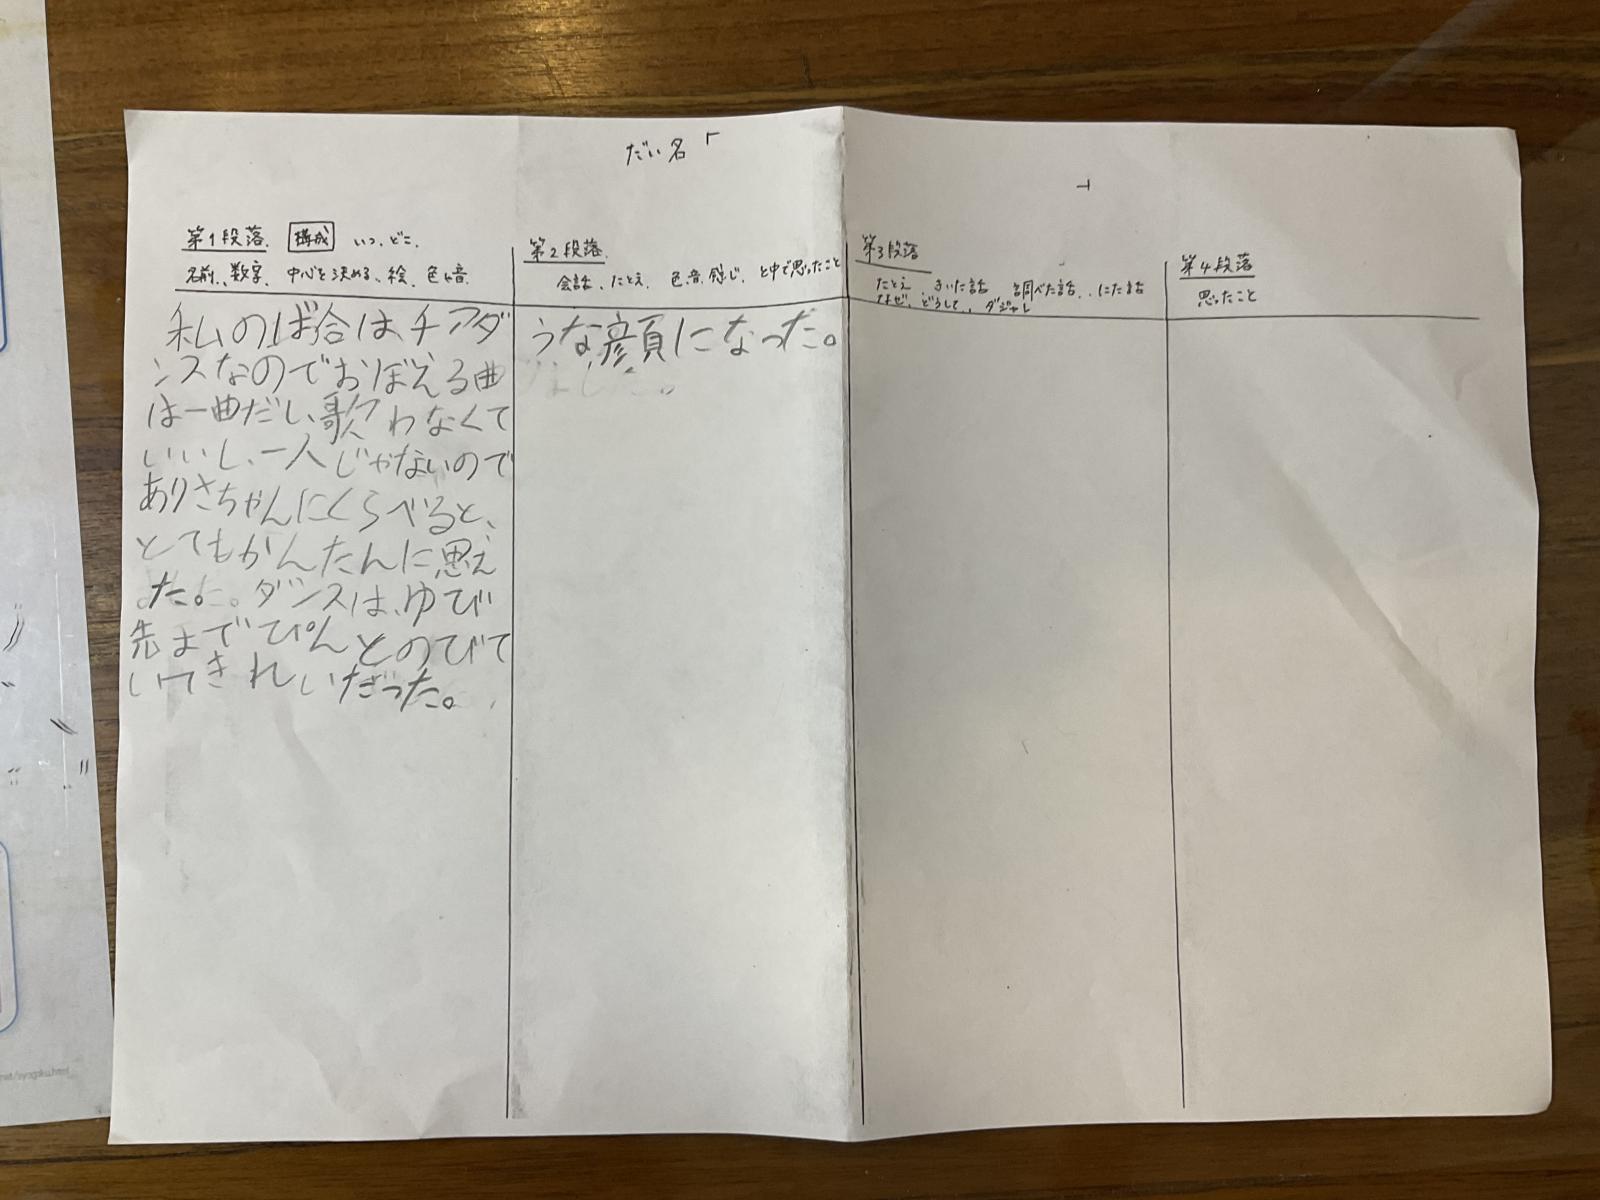 だい名「
」
第1段落. 構成 いつ、どこ、
名前、数字、中心を決める、絵、色、音、
私のば合は、チアダ
ンスなのでおぼえる曲
は一曲だし、歌わなくて
いいし、一人じゃないので
ありさちゃんにくらべると、
とてもかんたんに思え
た。ダンスは、ゆび
先までぴんとのびて
いてきれいだった。
第2段落.
会話、たとえ、色、音、感じ、と中で思ったこと
うな顔になった。
第3段落
たとえ、きいた話、調べた話、にた話
なぜ、どうして、ダジャレ
第4段落
思ったこと